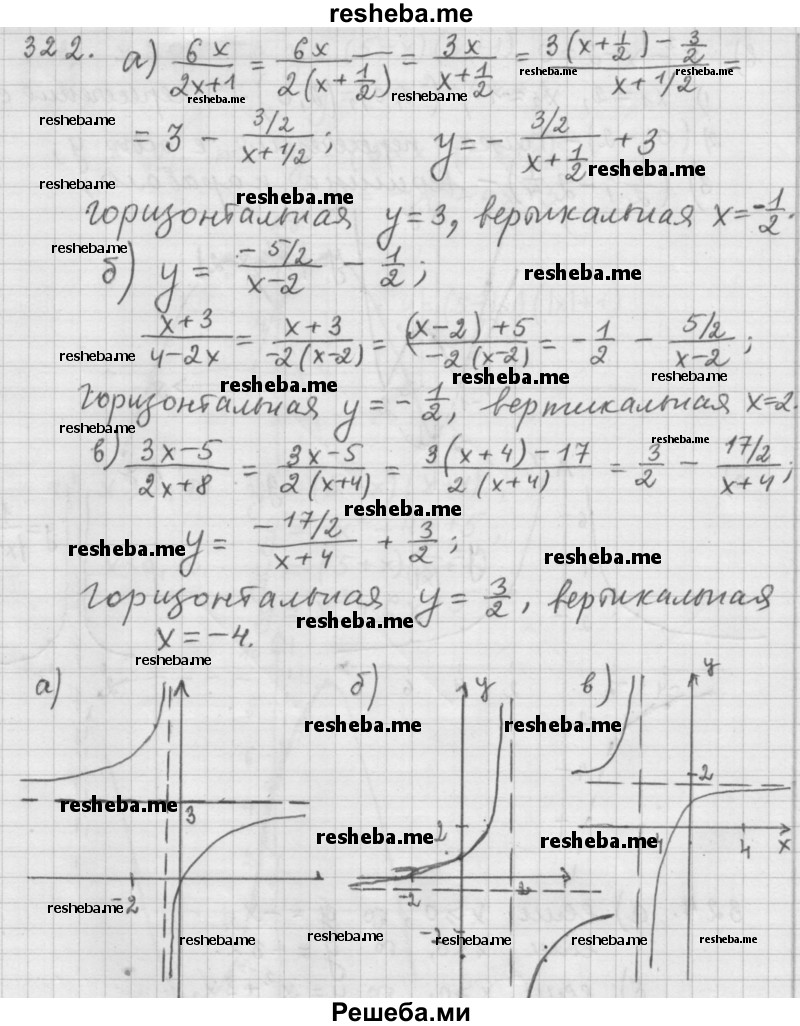 resheba.me
322. а) 6x/(2x+1) = 6x/(2(x+1/2)) = 3x/(x+1/2) = (3(x+1/2) - 3/2)/(x+1/2) =
resheba.me resheba.me resheba.me resheba.me
resheba.me
= 3 - (3/2)/(x+1/2); y = - (3/2)/(x+1/2) + 3
resheba.me
resheba.me resheba.me
горизонтальная y=3, вертикальная x=-1/2.
resheba.me
б) y = (-5/2)/(x-2) - 1/2;
resheba.me
(x+3)/(4-2x) = (x+3)/(-2(x-2)) = ((x-2)+5)/(-2(x-2)) = -1/2 - (5/2)/(x-2);
resheba.me resheba.me resheba.me resheba.me
горизонтальная y = -1/2, вертикальная x=2.
resheba.me resheba.me
в) (3x-5)/(2x+8) = (3x-5)/(2(x+4)) = (3(x+4)-17)/(2(x+4)) = 3/2 - (17/2)/(x+4);
resheba.me
y = (-17/2)/(x+4) + 3/2;
resheba.me resheba.me
горизонтальная y = 3/2, вертикальная
resheba.me
x = -4.
resheba.me
а) б) y в) y
resheba.me resheba.me
2
resheba.me
3
2
resheba.me resheba.me
-4 4 x
-2 -2 2
resheba.me
-2
resheba.me resheba.me resheba.me resheba.me resheba.me
Решеба.ми